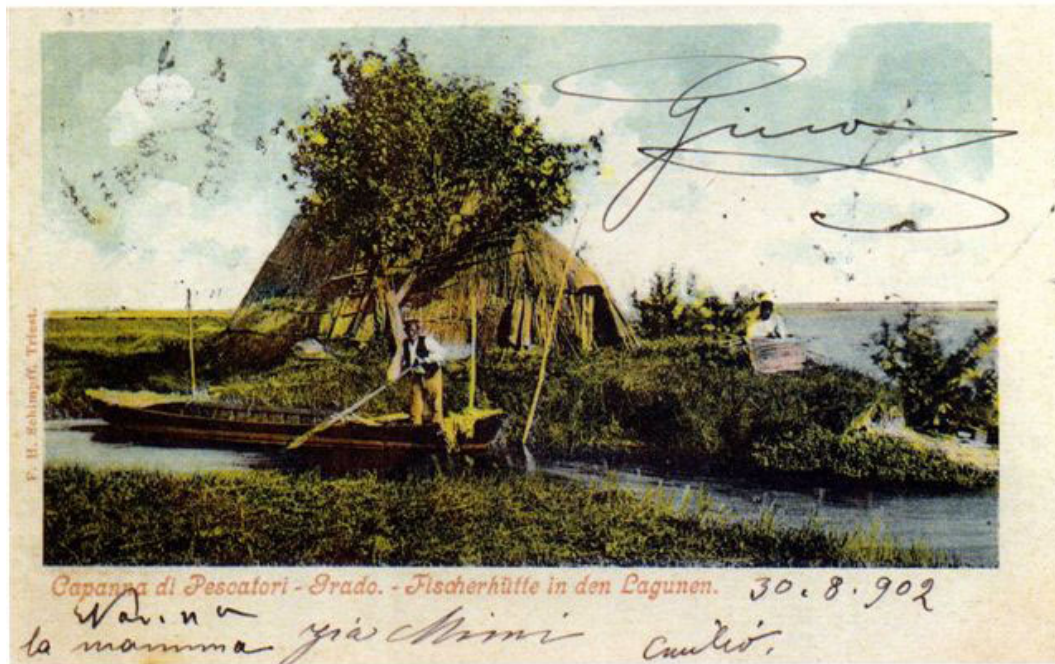 Gino
F. H. Schimpff, Triest.
Capanna di Pescatori - Grado. - Fischerhütte in den Lagunen.
30.8.902
la mamma
zia Mimi
Emilio.